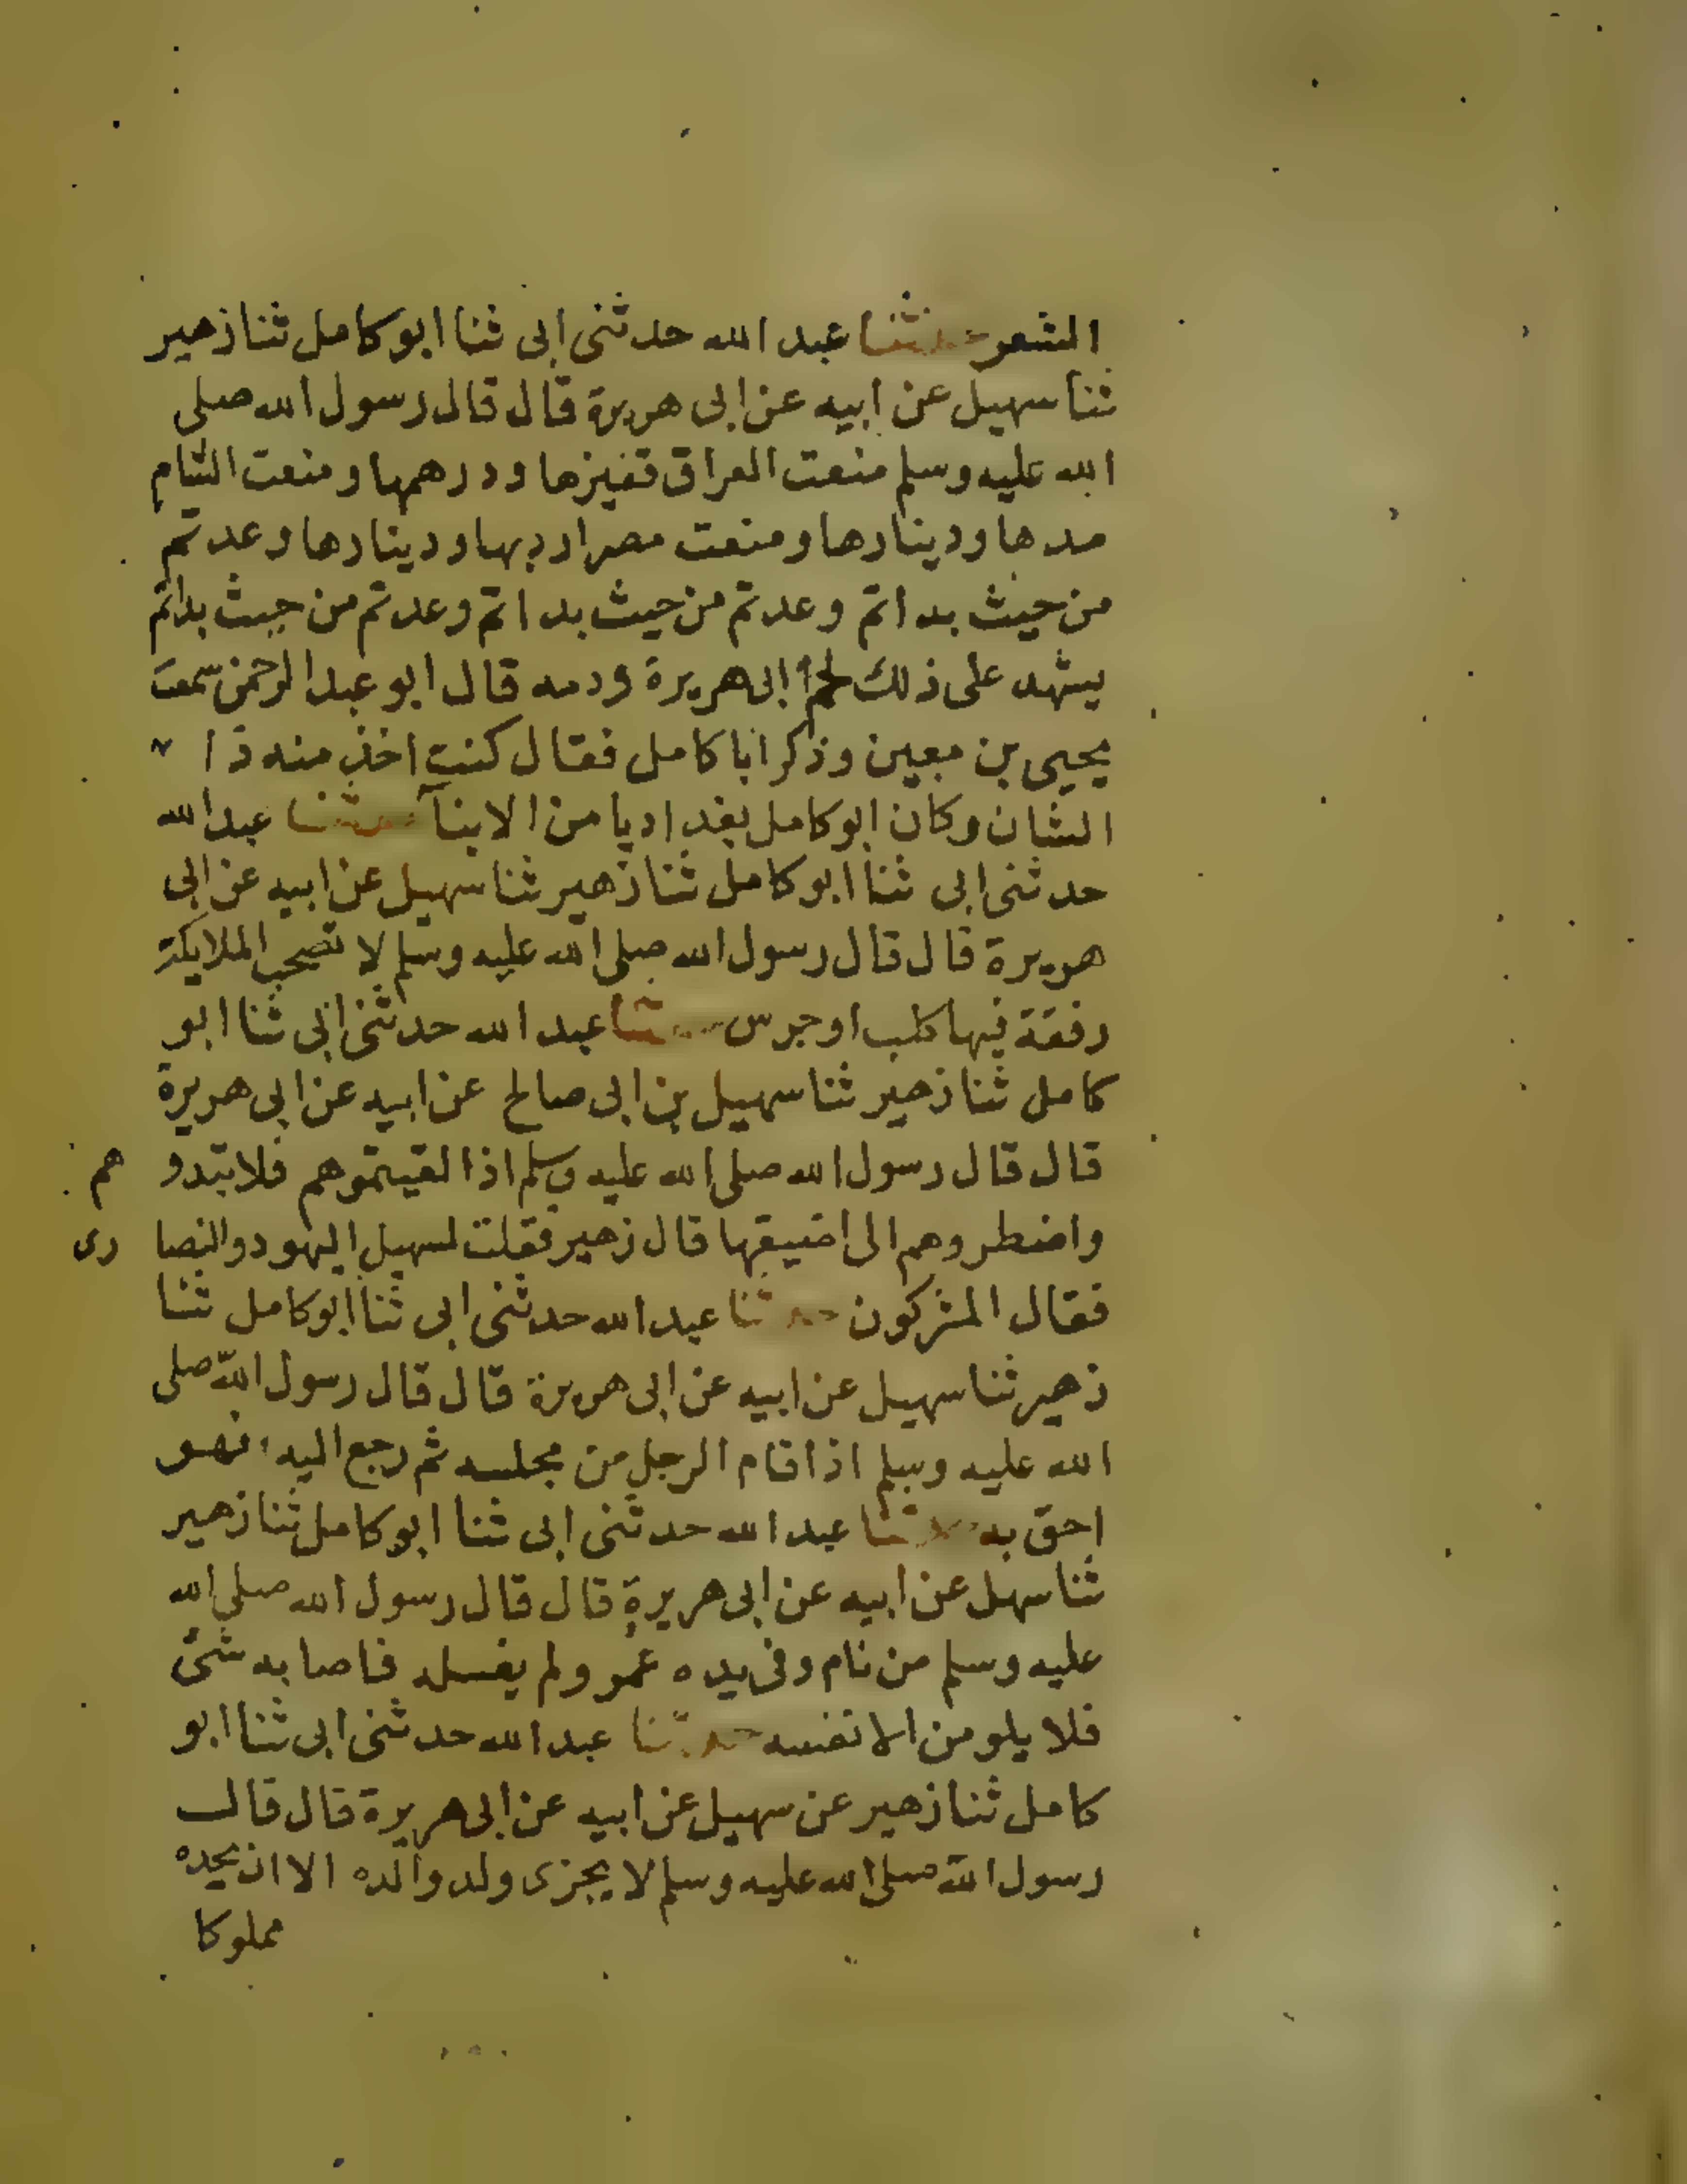 الشعر حدثنا عبد الله حدثنى ابى ثنا ابو كامل ثنا زهير
ثنا سهيل عن ابيه عن ابى هريرة قال قال رسول الله صلى
الله عليه وسلم منعت العراق قفيزها ودرهمها ومنعت الشام
مدها ودينارها ومنعت مصر اردبها ودينارها وعدتم
من حيث بداتم وعدتم من حيث بداتم وعدتم من حيث بداتم
يشهد على ذلك لحم ابى هريرة ودمه قال ابو عبد الرحمن سمعت
يحيى بن معين وذكر ابا كامل فقال كنت اخذ منه ذا
الشان وكان ابو كامل بغداديا من الابنآ حدثنا عبد الله
حدثنى ابى ثنا ابو كامل ثنا زهير ثنا سهيل عن ابيه عن ابى
هريرة قال قال رسول الله صلى الله عليه وسلم لا تصحب الملايكة
رفقة فيها كلب او جرس حدثنا عبد الله حدثنى ابى ثنا ابو
كامل ثنا زهير ثنا سهيل بن ابى صالح عن ابيه عن ابى هريرة
قال قال رسول الله صلى الله عليه وسلم اذا لقيتموهم فلا تبدوهم
واضطروهم الى اضيقها قال زهير فقلت لسهيل اليهود والنصارى
فقال المشركون حدثنا عبد الله حدثنى ابى ثنا ابو كامل ثنا
زهير ثنا سهيل عن ابيه عن ابى هريرة قال قال رسول الله صلى
الله عليه وسلم اذا قام الرجل من مجلسه ثم رجع اليه فهو
احق به حدثنا عبد الله حدثنى ابى ثنا ابو كامل ثنا زهير
ثنا سهيل عن ابيه عن ابى هريرة قال قال رسول الله صلى الله
عليه وسلم من نام وفى يده غمر ولم يغسله فاصابه شى
فلا يلومن الا نفسه حدثنا عبد الله حدثنى ابى ثنا ابو
كامل ثنا زهير عن سهيل عن ابيه عن ابى هريرة قال قال
رسول الله صلى الله عليه وسلم لا يجزى ولد والده الا ان يجده
مملوكا